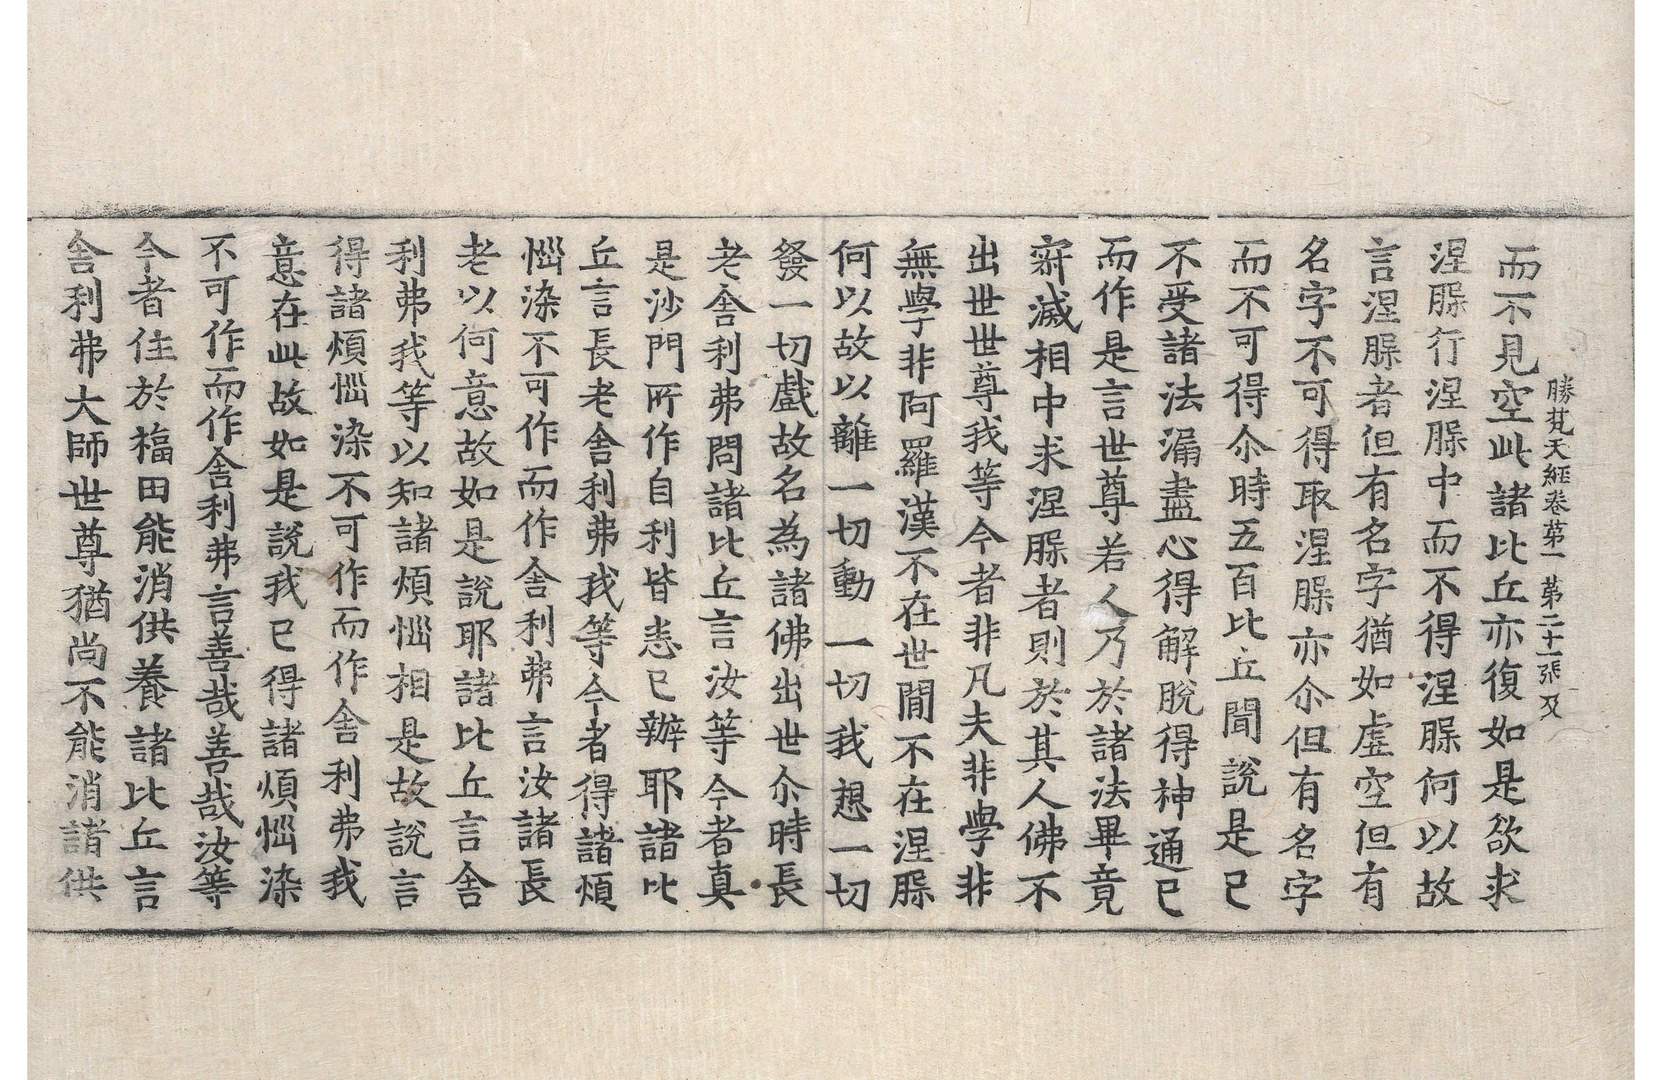 勝梵天經卷苐一 苐二十一張 及
而不見空此諸比丘亦復如是欲求
涅槃行涅槃中而不得涅槃何以故
言涅槃者但有名字猶如虛空但有
名字不可得取涅槃亦尒但有名字
而不可得尒時五百比丘聞說是已
不受諸法漏盡心得解脫得神通已
而作是言世尊若人乃於諸法畢竟
寂滅相中求涅槃者則於其人佛不
出世世尊我等今者非凡夫非學非
無學非阿羅漢不在世間不在涅槃
何以故以離一切動一切我想一切
發一切戲故名為諸佛出世尒時長
老舍利弗問諸比丘言汝等今者真
是沙門所作自利皆悉已辦耶諸比
丘言長老舍利弗我等今者得諸煩
惱染不可作而作舍利弗言汝諸長
老以何意故如是說耶諸比丘言舍
利弗我等以知諸煩惱相是故說言
得諸煩惱染不可作而作舍利弗我
意在此故如是說我已得諸煩惱染
不可作而作舍利弗言善哉善哉汝等
今者住於福田能消供養諸比丘言
舍利弗大師世尊猶尚不能消諸供